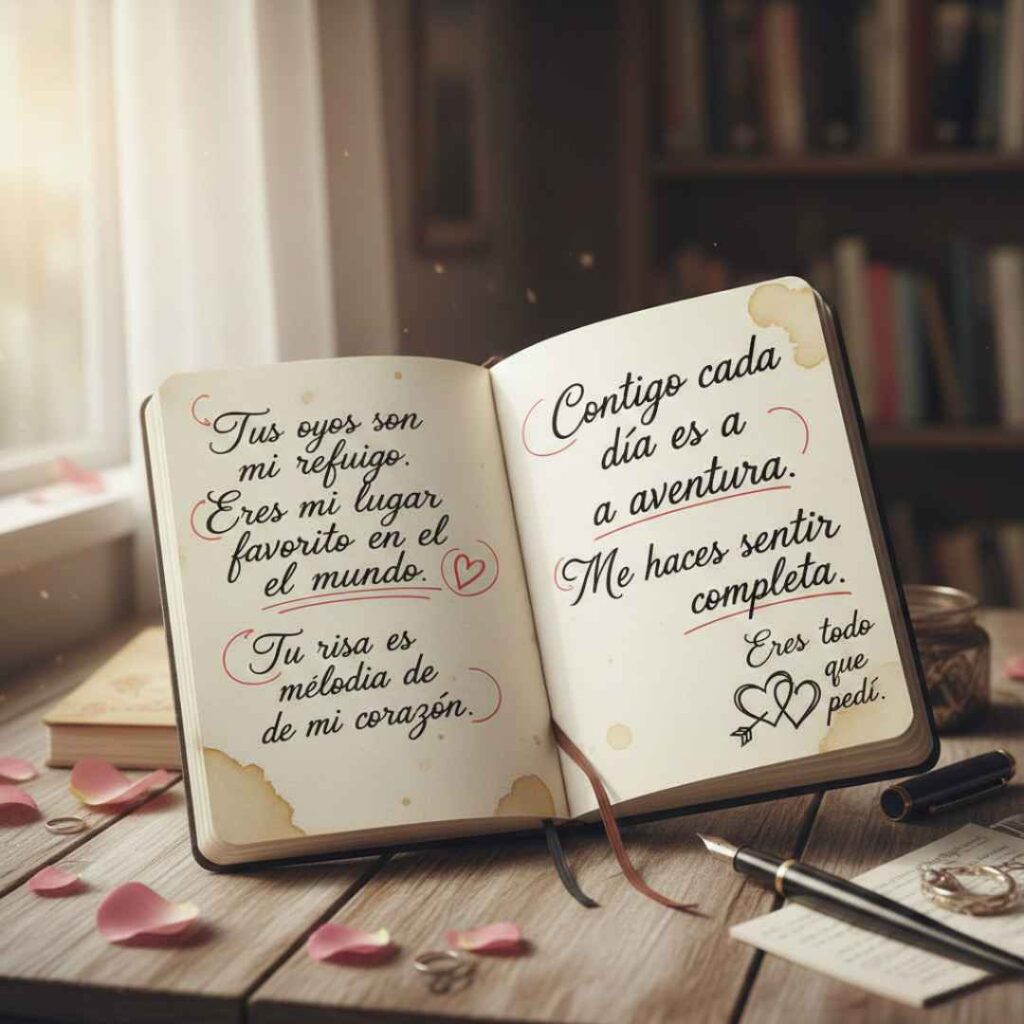 Tus oyos son
mi refuigo.
Eres mi lugar
favorito en el
el mundo.
Tu risa es
mélodia de
de mi corazón.
Contigo cada
día es a
a aventura.
Me haces sentir
completa.
Eres todo
que
pedí.